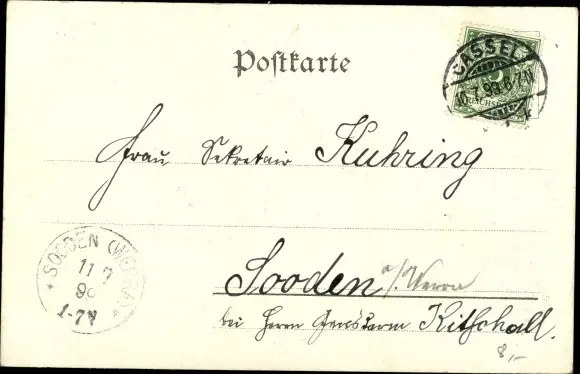 Postkarte
CASSEL
10.7.99.6-7N
REICHSPOST
Frau Sekretair Kuhring
SOODEN (WERRA)
11 7
99
1-7V
Sooden a/Werra
bei Herrn Gensdarm Kitschall.
8,-